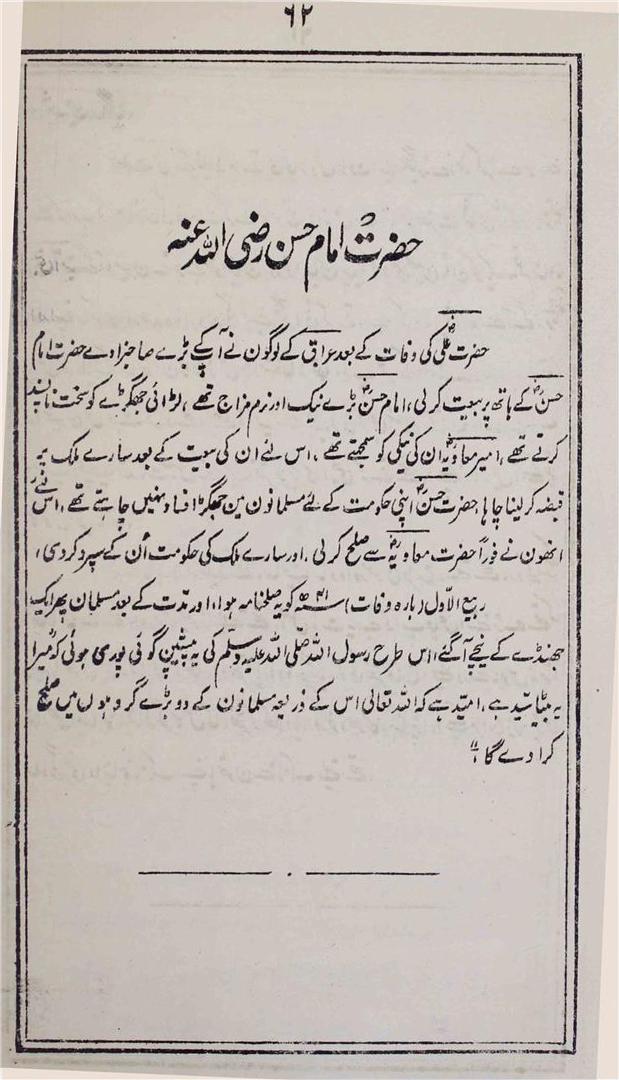 ۶۲
حضرت امام حسن رضی اللہ عنہ
حضرت علیؓ کی وفات کے بعد عراق کے لوگون نے آپکے بڑے صاحبزادے حضرت امام
حسنؓ کے ہاتھ پر بیعت کر لی، امام حسنؓ بڑے نیک اور نرم مزاج تھے، لڑائی جھگڑے کو سخت ناپسند
کرتے تھے، امیر معاویہؓ ان کی نیکی کو سمجھتے تھے، اس لئے ان کی بیعت کے بعد سارے ملک پر
قبضہ کر لینا چاہا، حضرت حسنؓ اپنی حکومت کے لئے مسلمانون مین جھگڑا فساد نہیں چاہتے تھے، اس لئے
انھون نے فوراً حضرت معاویہؓ سے صلح کر لی، اور سارے ملک کی حکومت اُن کے سپرد کر دی،
ربیع الاوّل (بارہ وفات) ۴۱ھ کو یہ صلحنامہ ہوا، اور مدّت کے بعد مسلمان پھر ایک
جھنڈے کے نیچے آگئے، اس طرح رسول اللہ صلّی اللہ علیہ وسلّم کی یہ پیشین گوئی پوری ہوئی کہ "میرا
یہ بیٹا سیّد ہے، امیّد ہے کہ اللہ تعالیٰ اس کے ذریعہ مسلمانون کے دو بڑے گروہوں میں صلح
کرا دے گا"